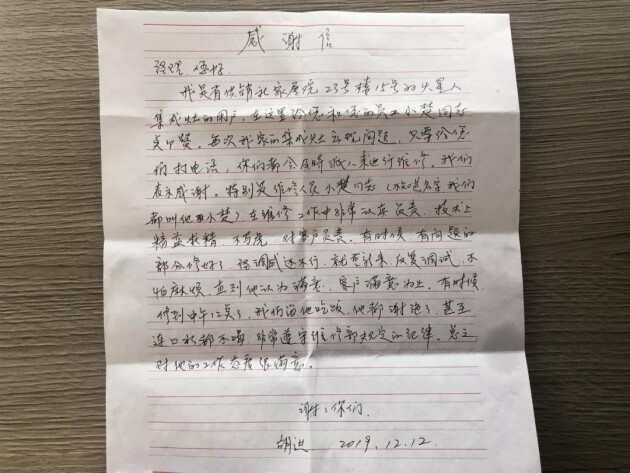 感谢信
经理 您好.
我是有供销社家属院23号楼15号的火星人
集成灶的用户, 在这里给您和您的员工小楚同志
点个赞. 每次我家的集成灶出现问题, 只要给您
们打电话, 你们都会及时派人来进行维修, 我们
表示感谢. 特别是维修人员小楚同志 (
都叫他 小楚), 在维修工作中非常认真负责, 技术上
精益求精 不马虎 对客户负责. 有时候 有问题的
部分修好了 调试还不行. 就 反复调试, 不
怕麻烦, 直到他认为满意, 客户满意为止. 有时候
修到中午12点了, 我们留他吃饭, 他都谢绝了. 甚至
连口水都不喝 非常遵守维修部规定的纪律. 总之
对他的工作态度很满意.
谢谢你们.
胡进 2019.12.12.